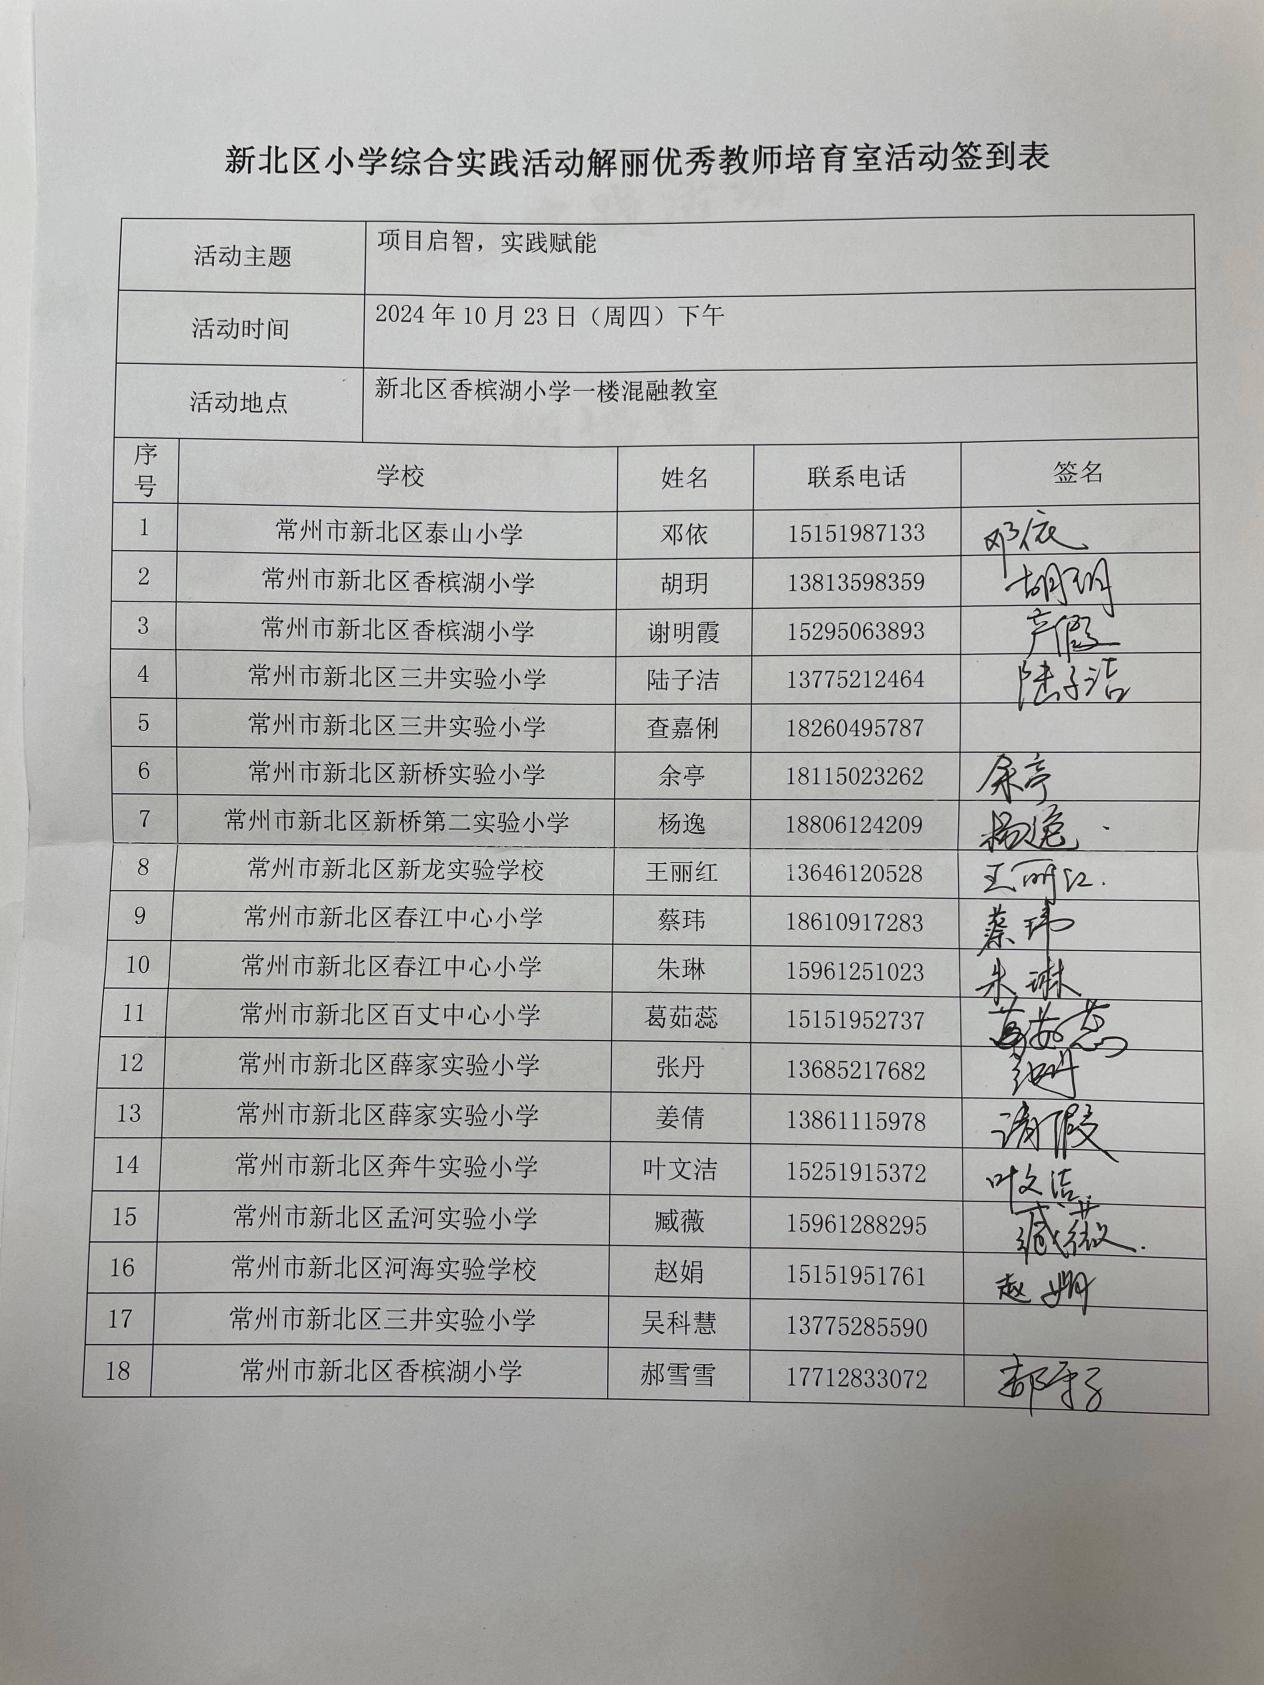 新北区小学综合实践活动解丽优秀教师培育室活动签到表
活动主题 项目启智，实践赋能
活动时间 2024 年 10 月 23 日（周四）下午
活动地点 新北区香槟湖小学一楼混融教室
序号 学校 姓名 联系电话 签名
1 常州市新北区泰山小学 邓依 15151987133 邓依
2 常州市新北区香槟湖小学 胡玥 13813598359 胡玥
3 常州市新北区香槟湖小学 谢明霞 15295063893 产假
4 常州市新北区三井实验小学 陆子洁 13775212464 陆子洁
5 常州市新北区三井实验小学 查嘉俐 18260495787
6 常州市新北区新桥实验小学 余亭 18115023262 余亭
7 常州市新北区新桥第二实验小学 杨逸 18806124209 杨逸
8 常州市新北区新龙实验学校 王丽红 13646120528 王丽红
9 常州市新北区春江中心小学 蔡玮 18610917283 蔡玮
10 常州市新北区春江中心小学 朱琳 15961251023 朱琳
11 常州市新北区百丈中心小学 葛茹蕊 15151952737 葛茹蕊
12 常州市新北区薛家实验小学 张丹 13685217682 张丹
13 常州市新北区薛家实验小学 姜倩 13861115978 请假
14 常州市新北区奔牛实验小学 叶文洁 15251915372 叶文洁
15 常州市新北区孟河实验小学 臧薇 15961288295 臧薇
16 常州市新北区河海实验学校 赵娟 15151951761 赵娟
17 常州市新北区三井实验小学 吴科慧 13775285590
18 常州市新北区香槟湖小学 郝雪雪 17712833072 郝雪雪